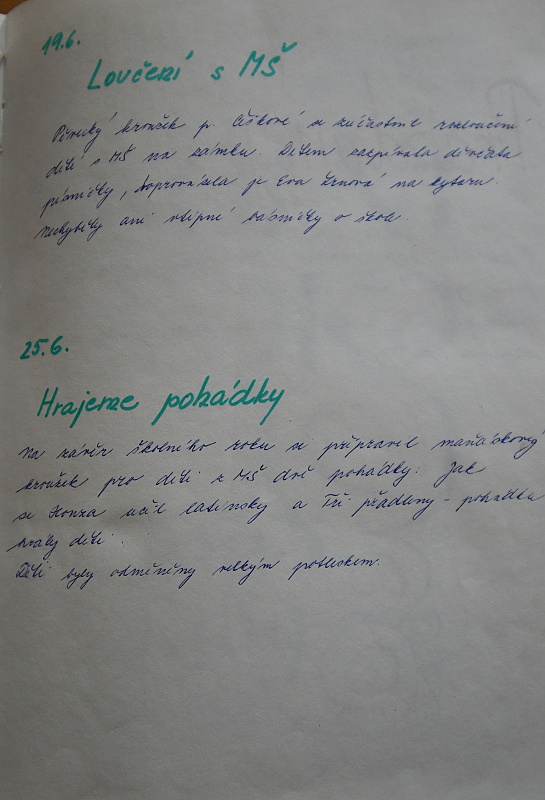 19.6.
Loučení s MŠ
Pěvecký kroužek p. Ciškové se zúčastnil rozloučení
dětí s MŠ na zámku. Dětem zazpívala děvčata
písničky, doprovázela je Eva na kytaru.
Nechyběly ani vtipné básničky o škole.
25.6.
Hrajeme pohádky
Na závěr školního roku si připravil maňáskový
kroužek pro děti z MŠ dvě pohádky. Jak
se Honza učil latinsky a Tři přadleny - pohádku
hrály děti.
Děti byly odměněny velkým potleskem.